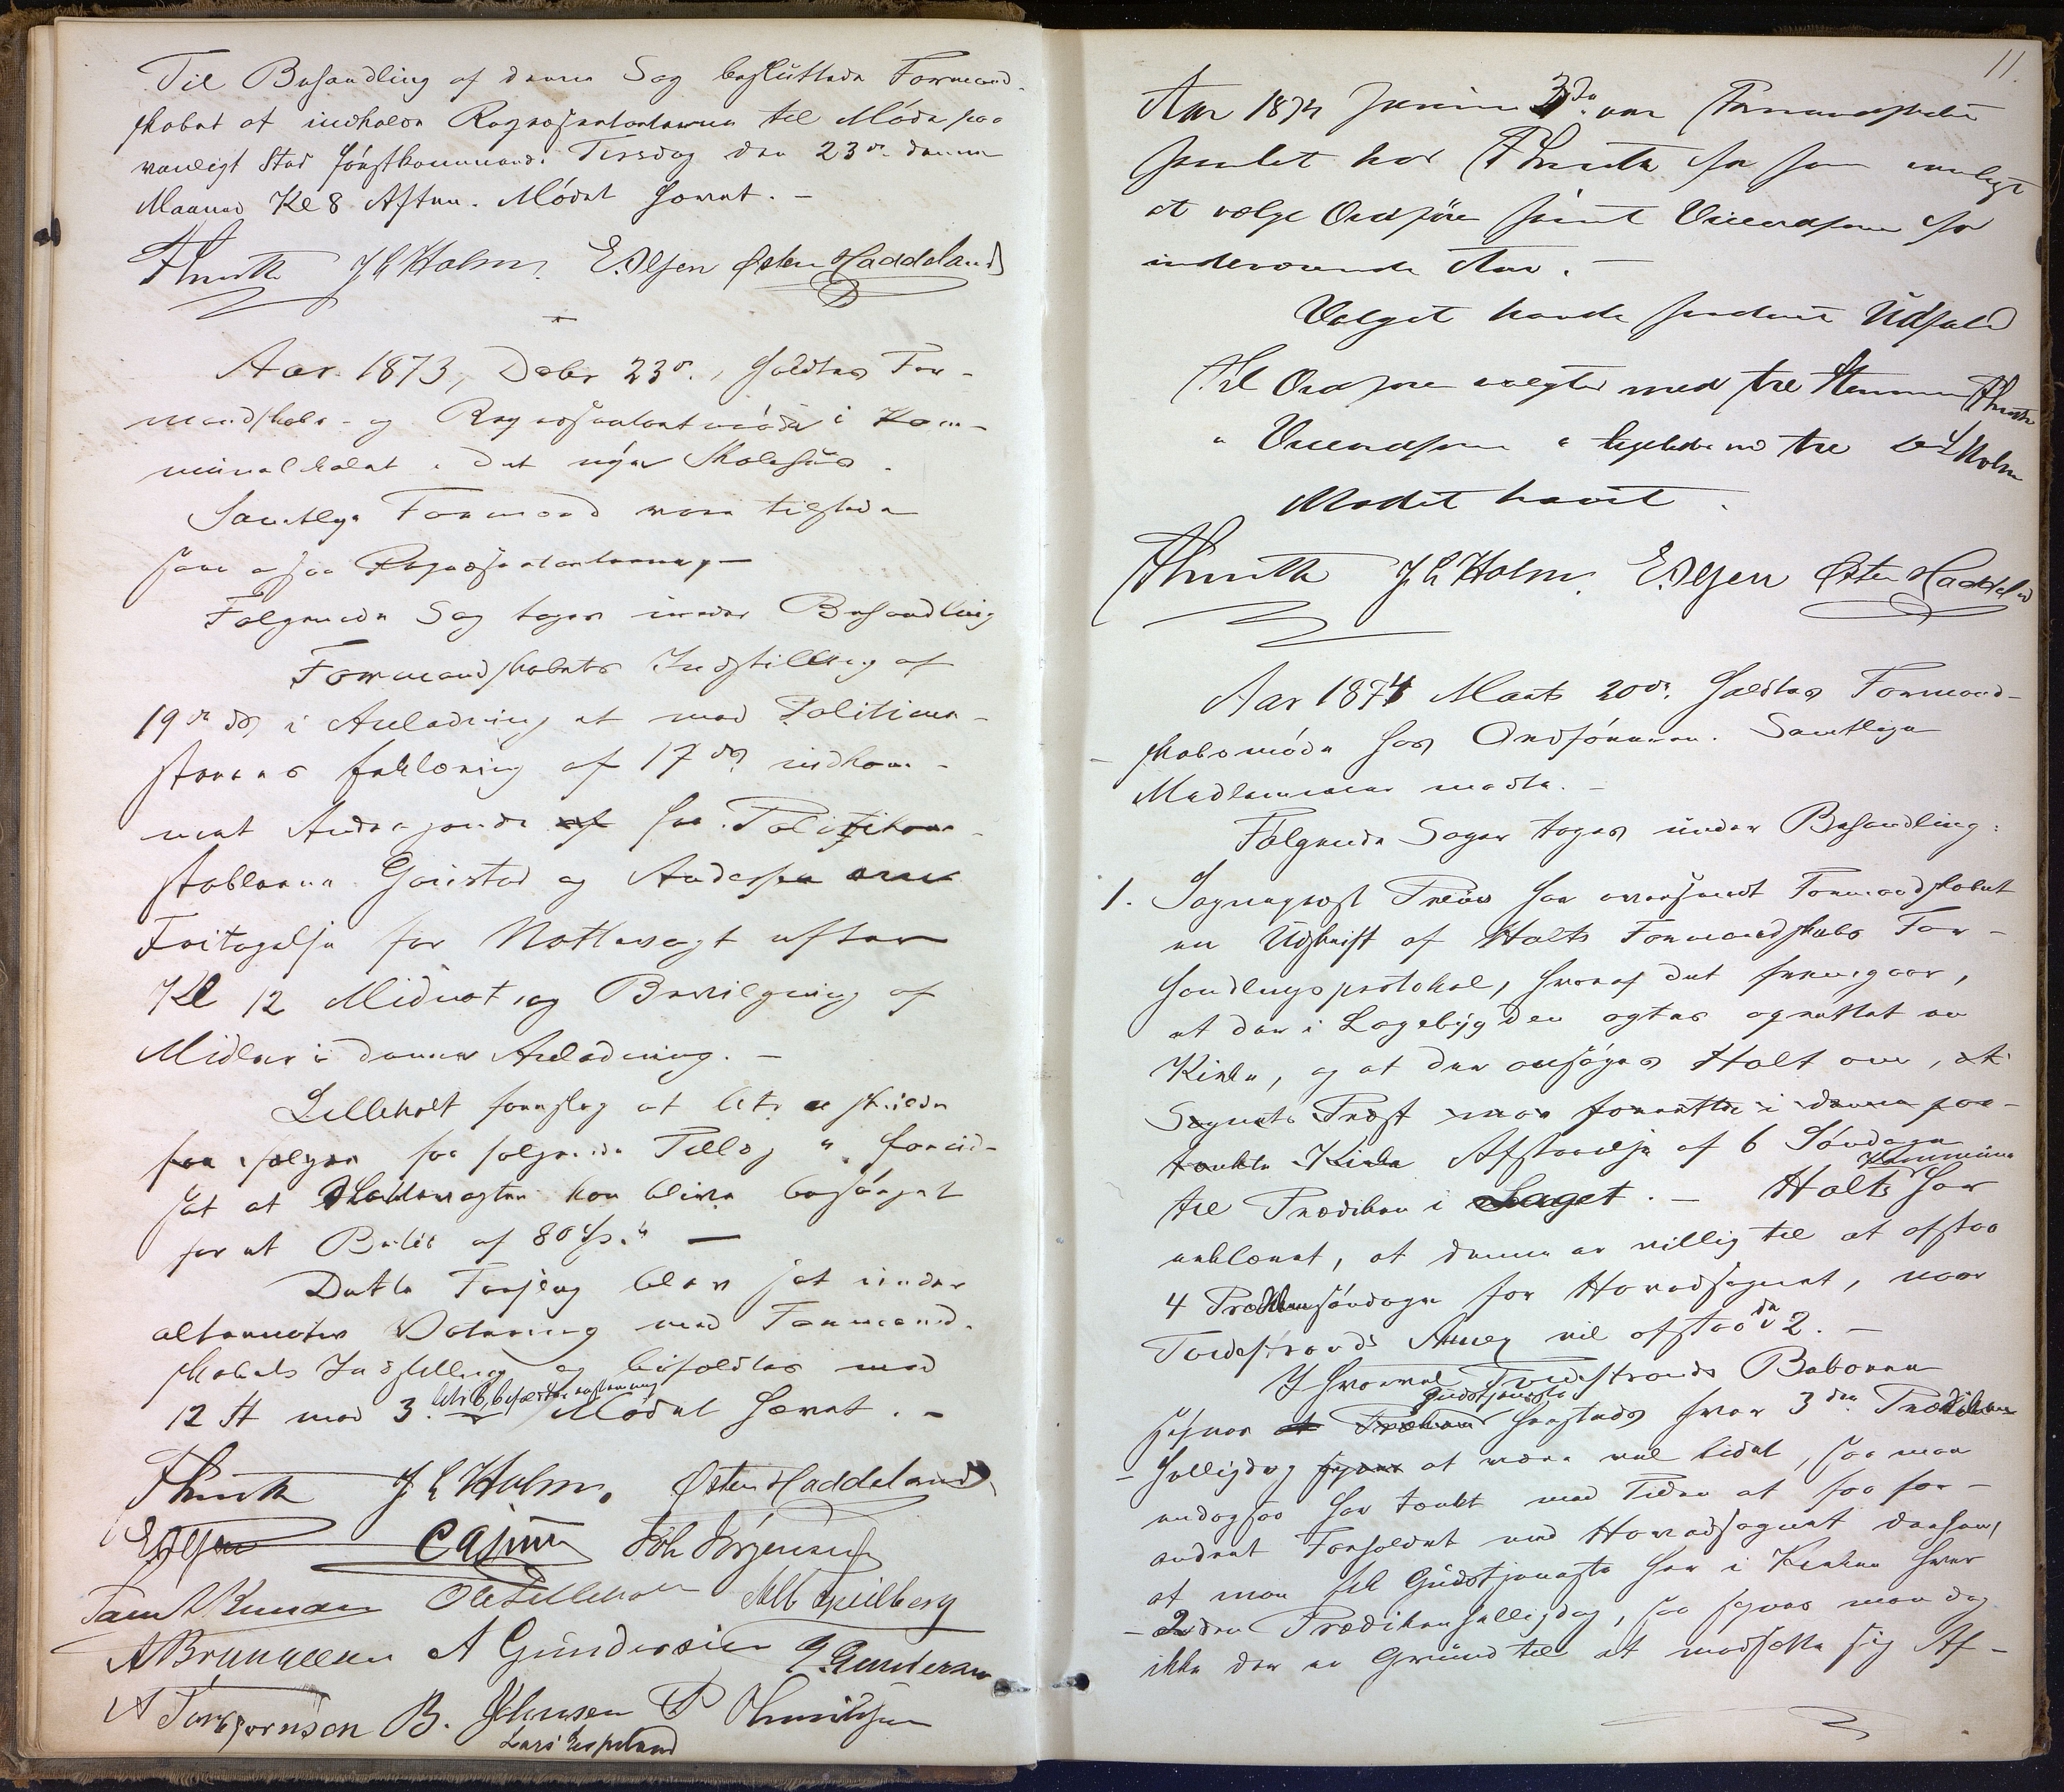 Til Behandling af denne Sag besluttede Formand-
skabet at indkalde Repræsentanterne til Möde paa
vanligt Sted förstkommende Tirsdag den 23de denne
Maaned Kl 8 Aften. Mödet hævet. -
J L Holm. E. Olsen Østen Haddeland
Aar 1873, Debr 23de, holdtes For-
mandskabs- og Repræsentantmöde i Kom-
munelokalet i det nye Skolehus.
Samtlige Formænd vare tilstede
som ogsaa Repræsentanterne, -
Følgende Sag toges under Behandling
Formandskabets Indstilling af
19de ds i Anledning at med Politime-
sterens Erklæring af 17 ds indkom-
met Andragende af fra Politikon-
stablerne Gjeustad og Andersen om
Fritagelse for Nattevagt efter
Kl 12 Midnat, og Bevilgning af
Midler i denne Anledning. -
Lilleholt foreslog at litr a skulde
faa følgende Tillæg " forud-
sat at Nattevagten kan blive besörget
for et Belöb af 80 Sp." -
Dette Forslag blev sat under
alternativ Votering med Formand-
skabets Indstilling og bifaldtes med
12 St mod 3. Mödet hævet. -
J L Holm. Østen Haddeland
E Olsen Joh Jörgensen
Ole Lilleholt Alb Speilberg
A Gundersen G. Gundersen
A Torbjörnsen B. Johnsen P Henriksen
Lars Espeland
11.
Aar 1874 Januar 3de var Formandskabet
samlet hos for som vanligt
at vælge Ordförer samt Viceordförer for
indeværende Aar. -
Valget havde saadant Udfald
Til Ordförer valgtes med tre Stemmer
" Viceordförer " ligeledes med tre J L Holm
Mødet hævet.
J L Holm. E. Olsen Østen Haddeland
Aar 1874 Marts 20de holdtes Formand-
skabsmöde hos Ordföreren. Samtlige
Medlemmer mødte. -
Følgende Sager toges under Behandling:
1. Sognepræst har oversendt Formandskabet
en Udskrift af Holts Formandskabs For-
handlingsprotokol, hvoraf det fremgaar,
at der i Lagebygden agtes oprettet en
Kirke, og at der ansöges Holt om, at
Sognets Præst maa forrette i denne paa-
tænkte Kirke Afstaaelse af 6 Söndage
til Prædiken i Laget. - Holts Kommune har
erklæret, at denne er villig til at afstaa
4 Prædikensöndage for Hovedsognet, naar
Tvedestrands Annex vil afstaa de 2. -
I hvorvel Tvedestrands Beboere
synes at Prækener Gudstjeneste hersteds hver 3die Prædiken
- helligdag synes at være vel lidet, saa man
endogsaa har tænkt med Tiden at faa for-
andret Forholdet med Hovedsognet derhen,
at man fik Gudstjeneste her i Kirken hver
- 2den Prædikenhelligdag, saa synes man dog
ikke der er Grund til at modsætte sig Af-